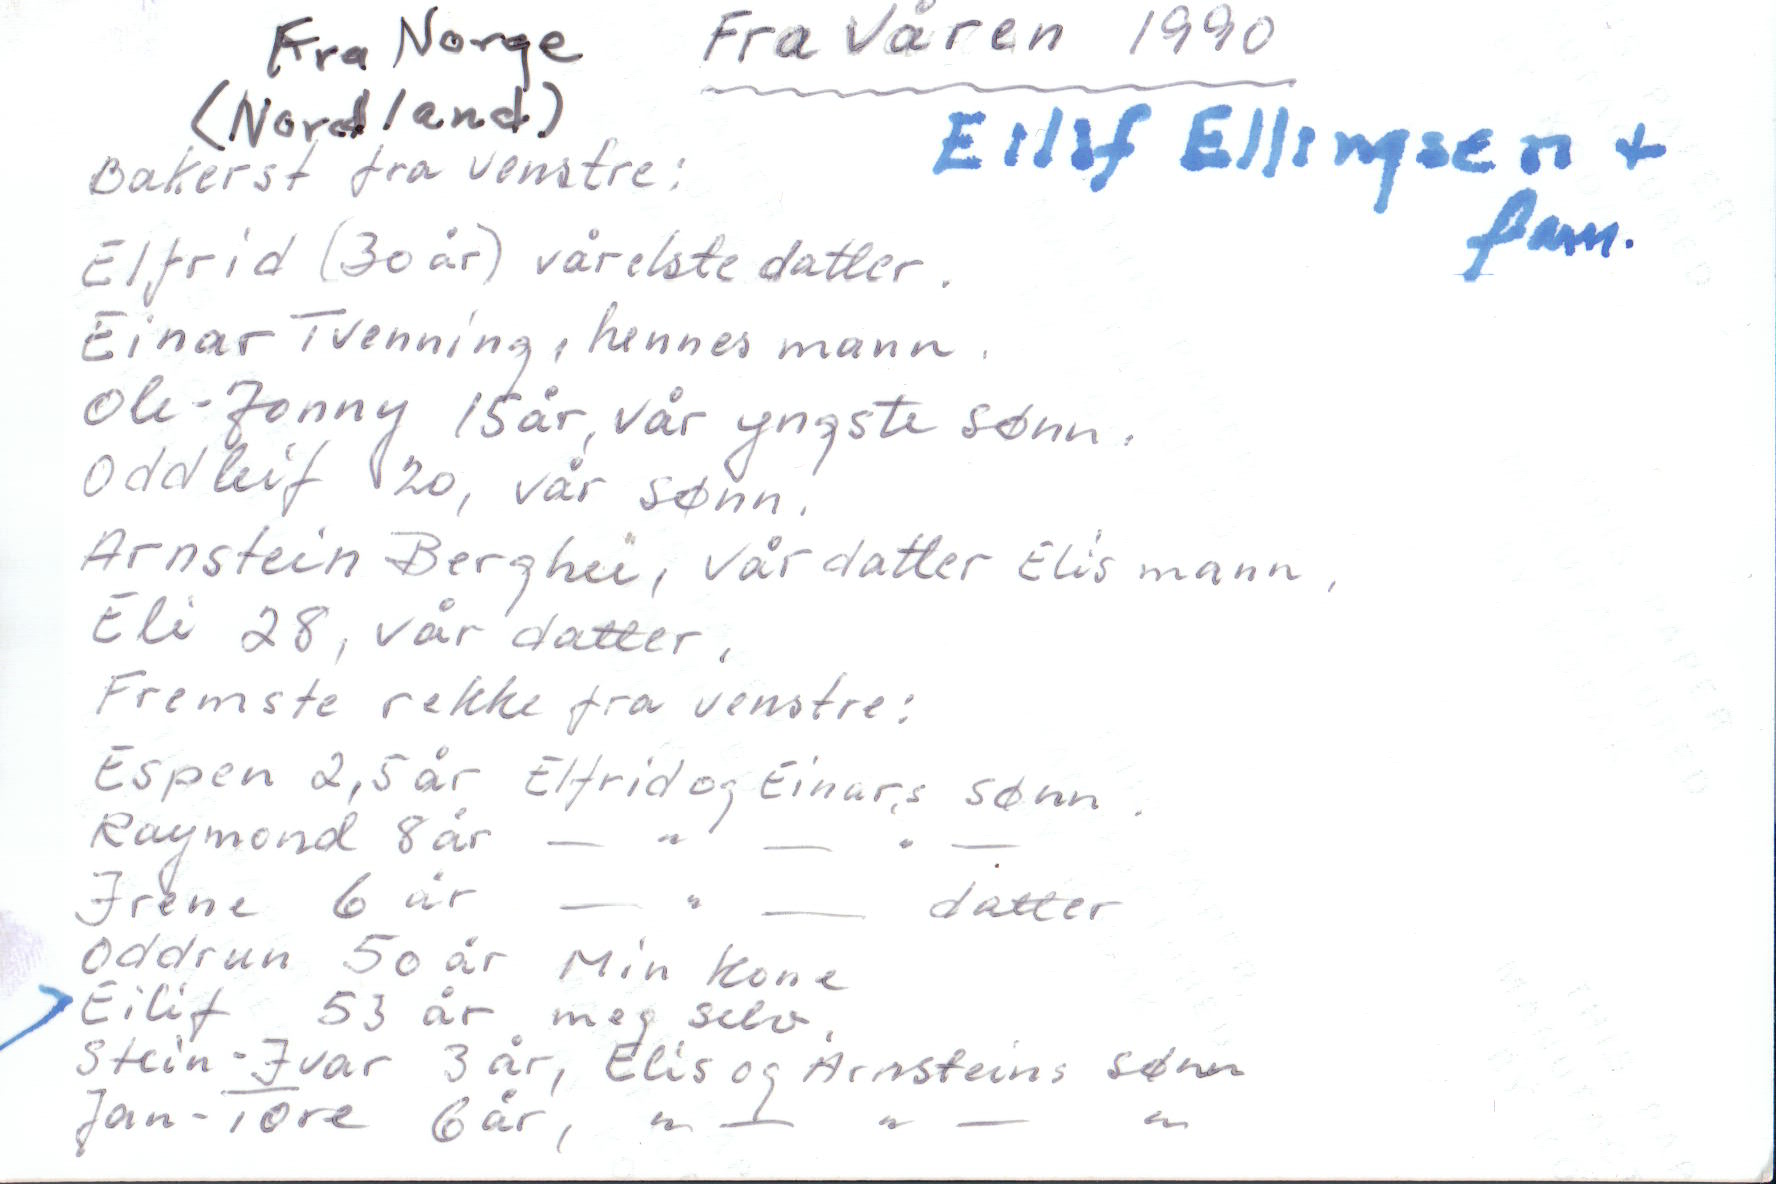 Fra Norge
(Nordland)
Fra Våren 1990
Eilif Ellingsen +
fam.
Bakerst fra venstre:
Elfrid (30 år) vår elste datter.
Einar Tvenning, hennes mann.
Ole-Jonny 15 år, vår yngste sønn.
Oddleif 20, vår sønn.
Arnstein Berghei, vår datter Elis mann,
Eli 28, vår datter,
Fremste rekke fra venstre:
Espen 2,5 år Elfrid og Einar,s sønn.
Raymond 8 år — " — " —
Irene 6 år — " — datter
Oddrun 50 år Min kone
Eilif 53 år meg selv.
Stein-Ivar 3 år, Elis og Arnsteins sønn
Jan-Tore 6 år, " — " — "